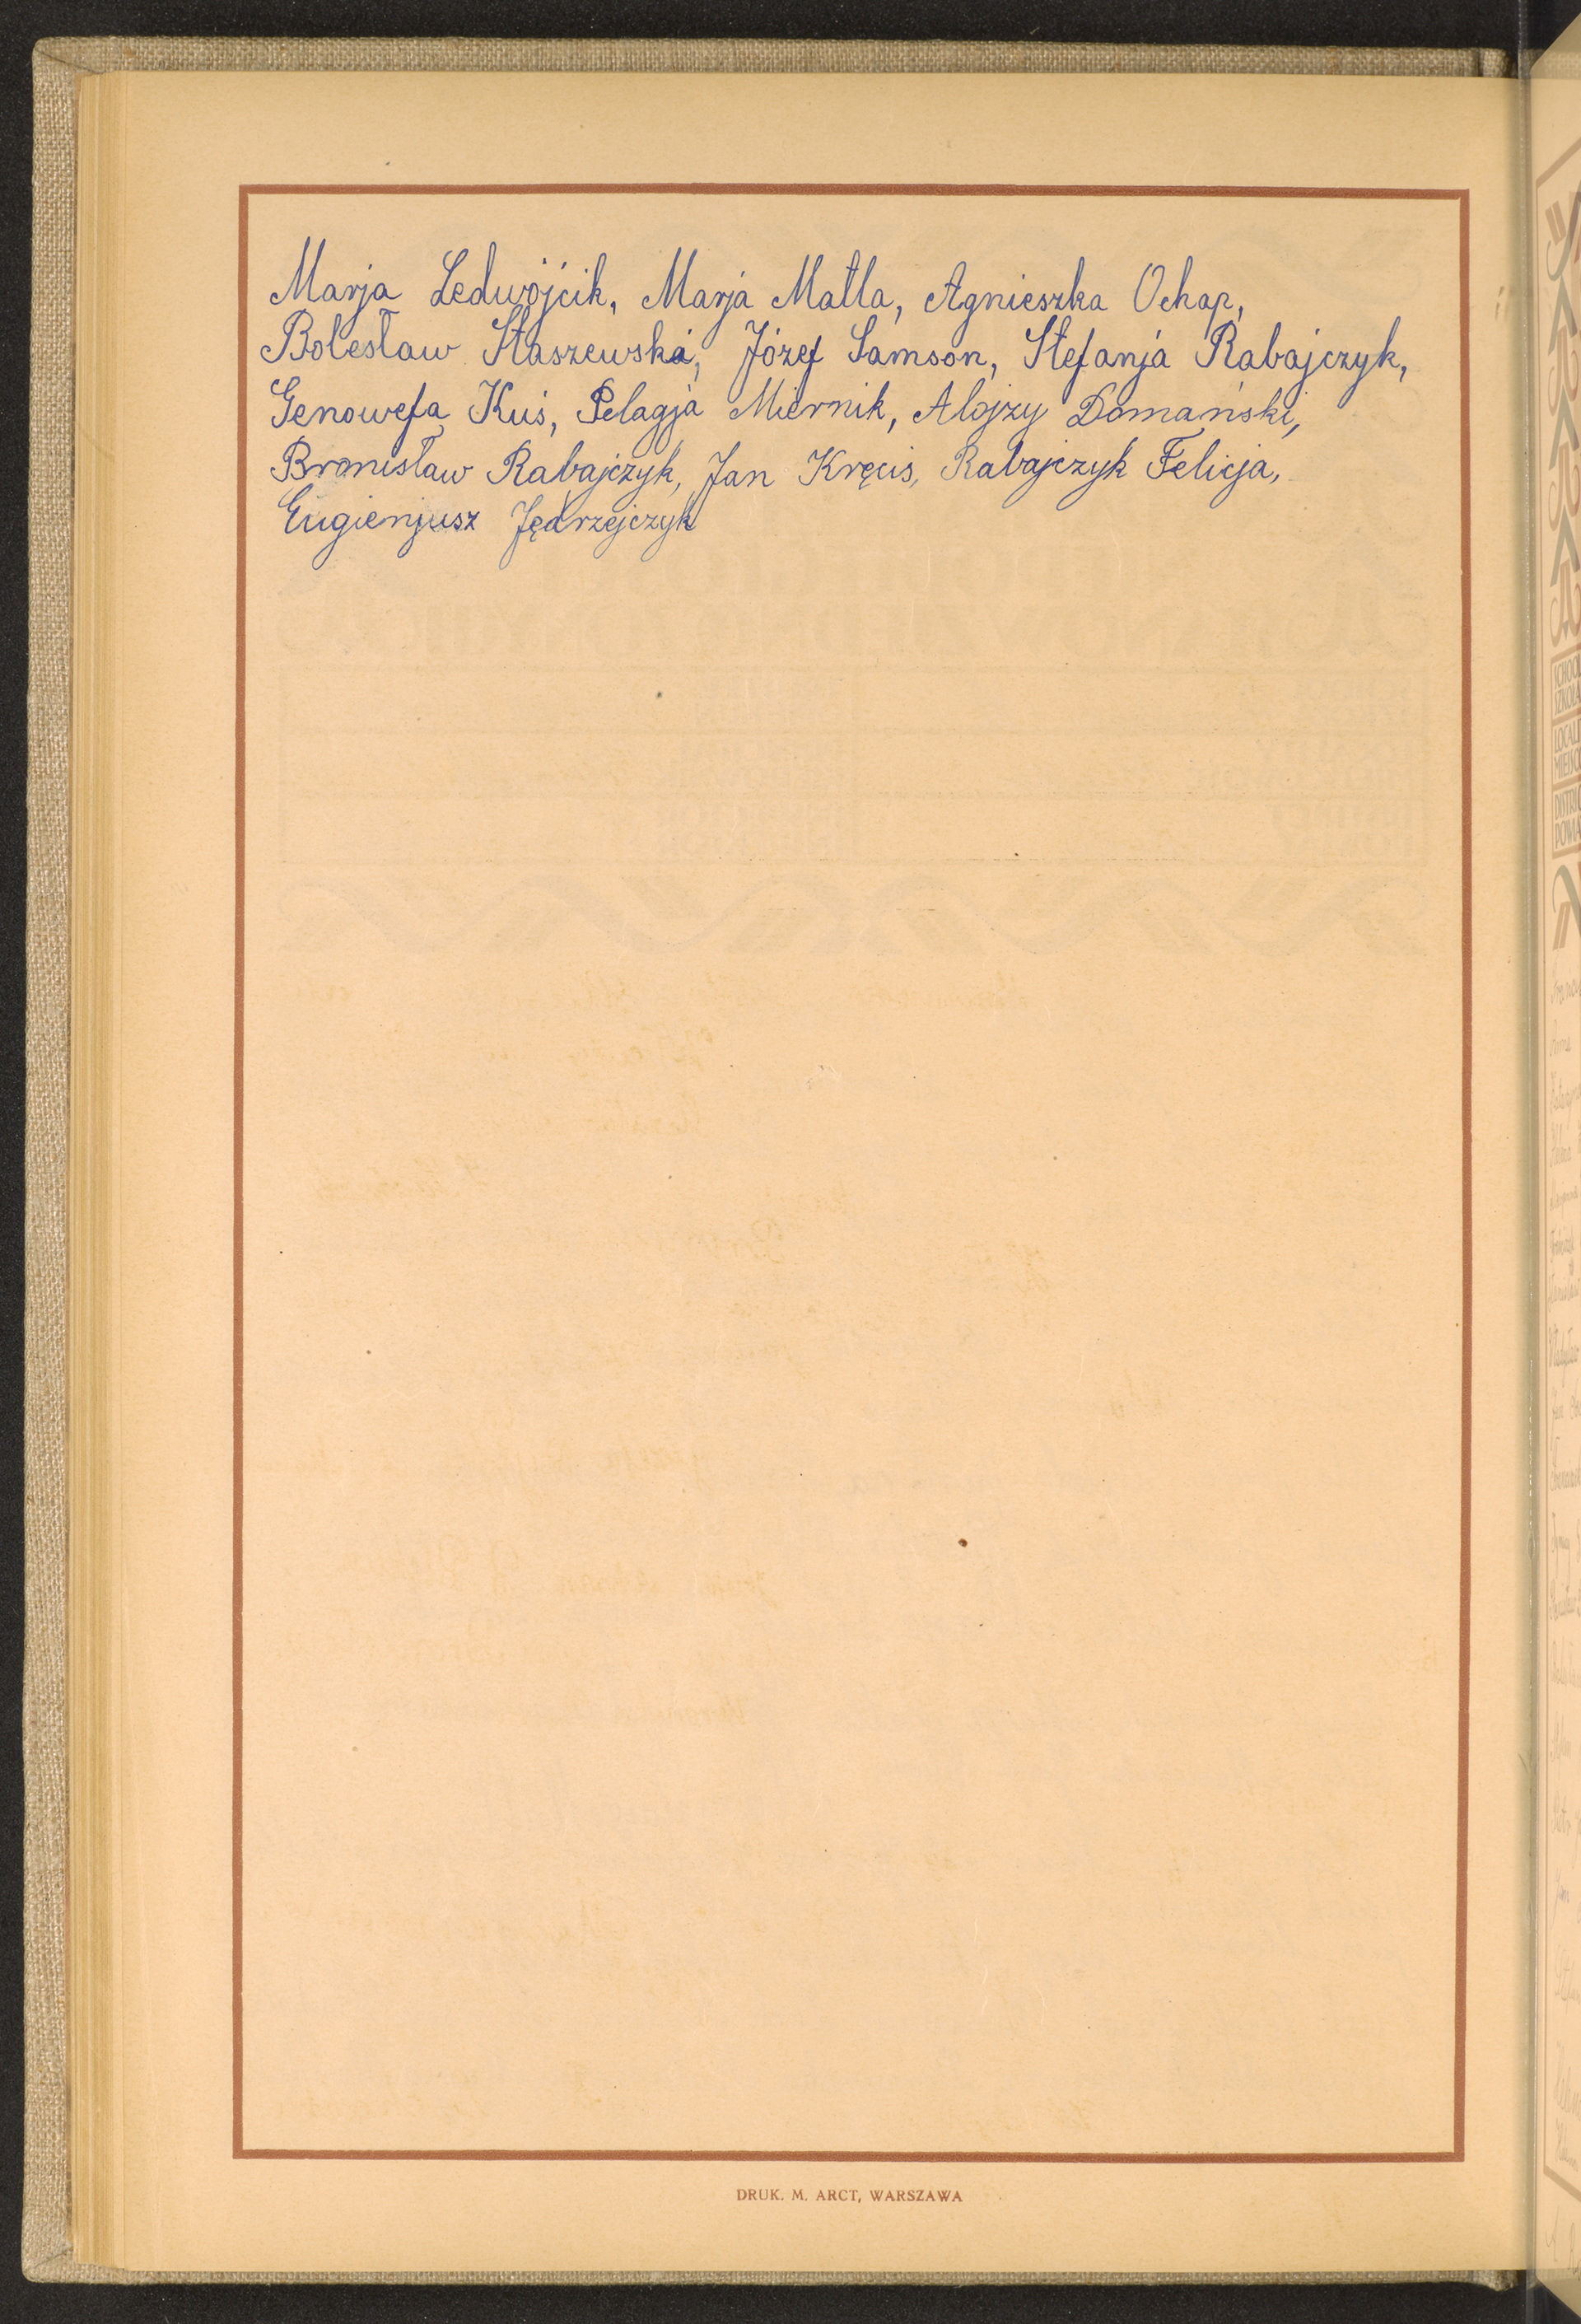 Marja Ledwójcik, Marja Matla, Agnieszka Ochap,
Bolesław Staszewski, Józef Samson, Stefanja Rabajczyk,
Genowefa Kuś, Pelagja Miernik, Alojzy Domański,
Bronisław Rabajczyk, Jan Kręcis, Rabajczyk Felicja,
Eugienjusz Jędrzejczyk
DRUK. M. ARCT, WARSZAWA